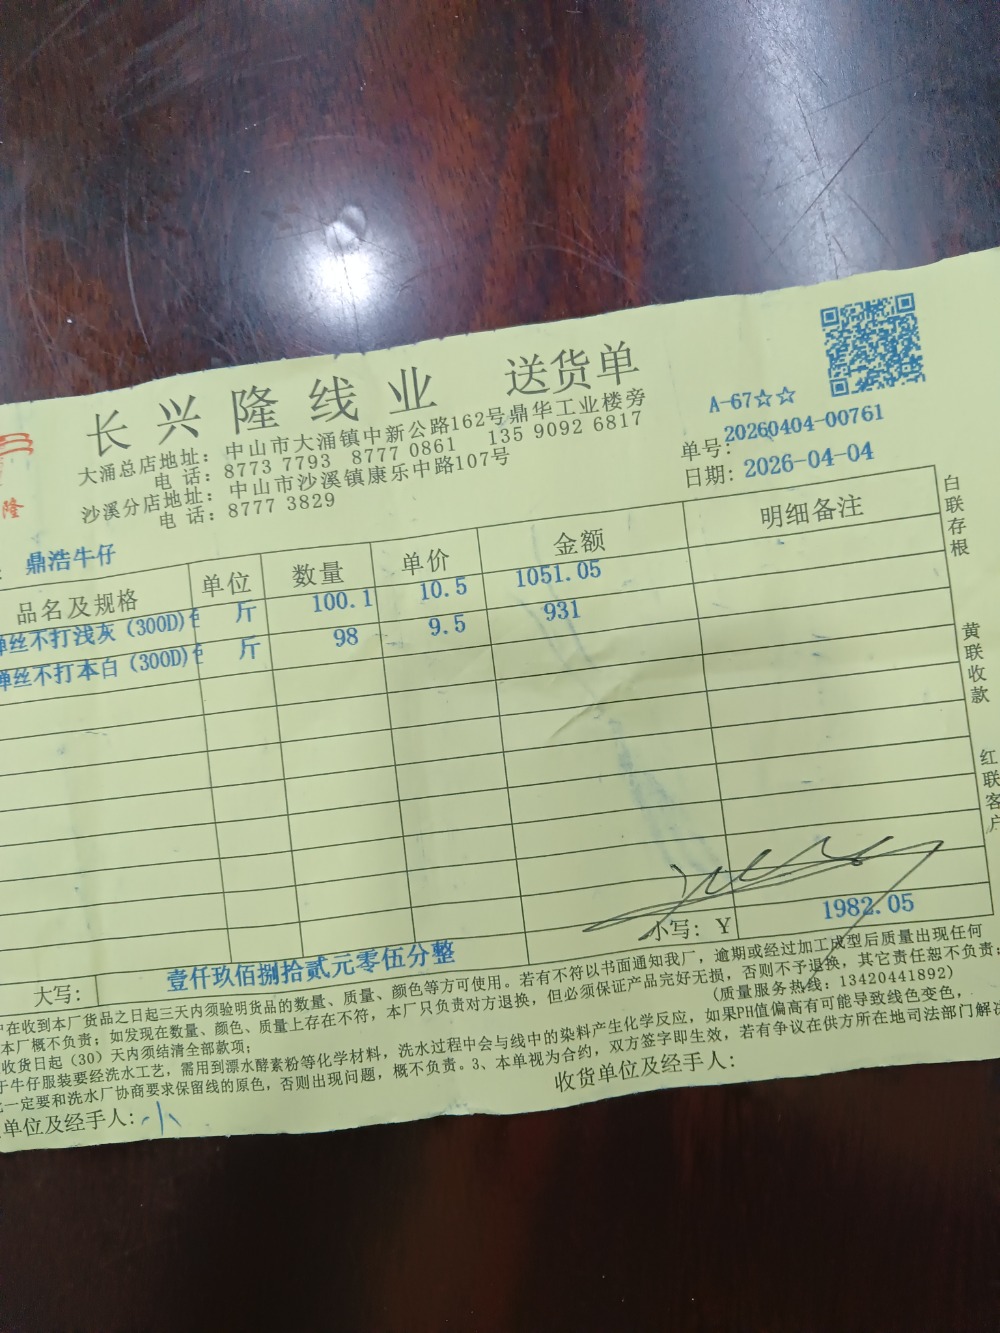 长兴隆线业 送货单
A-67☆☆
大涌总店地址: 中山市大涌镇中新公路162号鼎华工业楼旁
电 话: 8773 7793 8777 0861 135 9092 6817
沙溪分店地址: 中山市沙溪镇康乐中路107号
电 话: 8777 3829
单号: 20260404-00761
日期: 2026-04-04
隆
: 鼎浩牛仔
品名及规格 单位 数量 单价 金额 明细备注
弹丝不打浅灰(300D) 斤 100.1 10.5 1051.05
弹丝不打本白(300D) 斤 98 9.5 931
白联存根
黄联收款
红联客户
小写: ¥ 1982.05
大写: 壹仟玖佰捌拾贰元零伍分整
在收到本厂货品之日起三天内须验明货品的数量、质量、颜色等方可使用。若有不符以书面通知我厂,逾期或经过加工成型后质量出现任何
本厂概不负责;如发现在数量、颜色、质量上存在不符,本厂只负责对方退换,但必须保证产品完好无损,否则不予退换,其它责任恕不负责;
收货日起(30)天内须结清全部款项; (质量服务热线:13420441892)
于牛仔服装要经洗水工艺,需用到漂水酵素粉等化学材料,洗水过程中会与线中的染料产生化学反应,如果PH值偏高有可能导致线色变色,
一定要和洗水厂协商要求保留线的原色,否则出现问题,概不负责。3、本单视为合约,双方签字即生效,若有争议在供方所在地司法部门解决
单位及经手人: 小
收货单位及经手人: